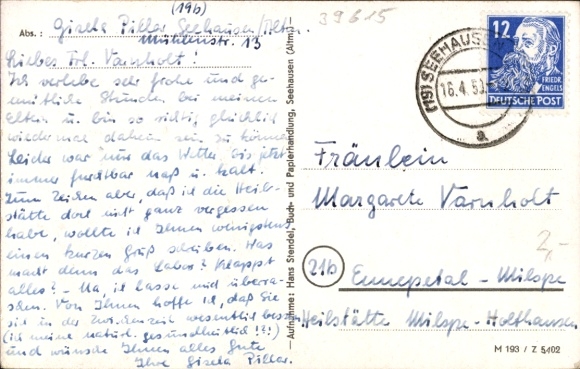 (19b)
Abs.: Gisela Piller Seehausen/Altm.
Mühlenstr. 13
Liebes Frl. Varnholt!
Ich verlebe sehr frohe und ge-
mütliche Stunden bei meinen
Eltern u. bin so richtig glücklich
wiedermal daheim sein zu können.
Leider war nur das Wetter bis jetzt
immer furchtbar naß u. kalt.
Zum Zeichen aber, daß ich die Heil-
stätte dort nicht ganz vergessen
habe, wollte ich Ihnen wenigstens
einen kurzen Gruß schreiben. Was
macht denn das Labor? Klappt
alles? - Na, ich lasse mich überra-
schen. Von Ihnen hoffe ich, daß Sie
sich in der Zwischenzeit wesentlich
(ich meine natürl. gesundheitlich!!!)
und wünsche Ihnen alles Gute
Ihre Gisela Piller.
Aufnahme: Hans Stendel, Buch- und Papierhandlung, Seehausen (Altm.)
39615
(19) SEEHAUSEN
16.4.53
a
12
FRIEDR.
ENGELS
DEUTSCHE POST
Fräulein
Margarete Varnholt
2,-
21b
Ennepetal - Milspe
Heilstätte Milspe-Holthausen
M 193 / Z 5402